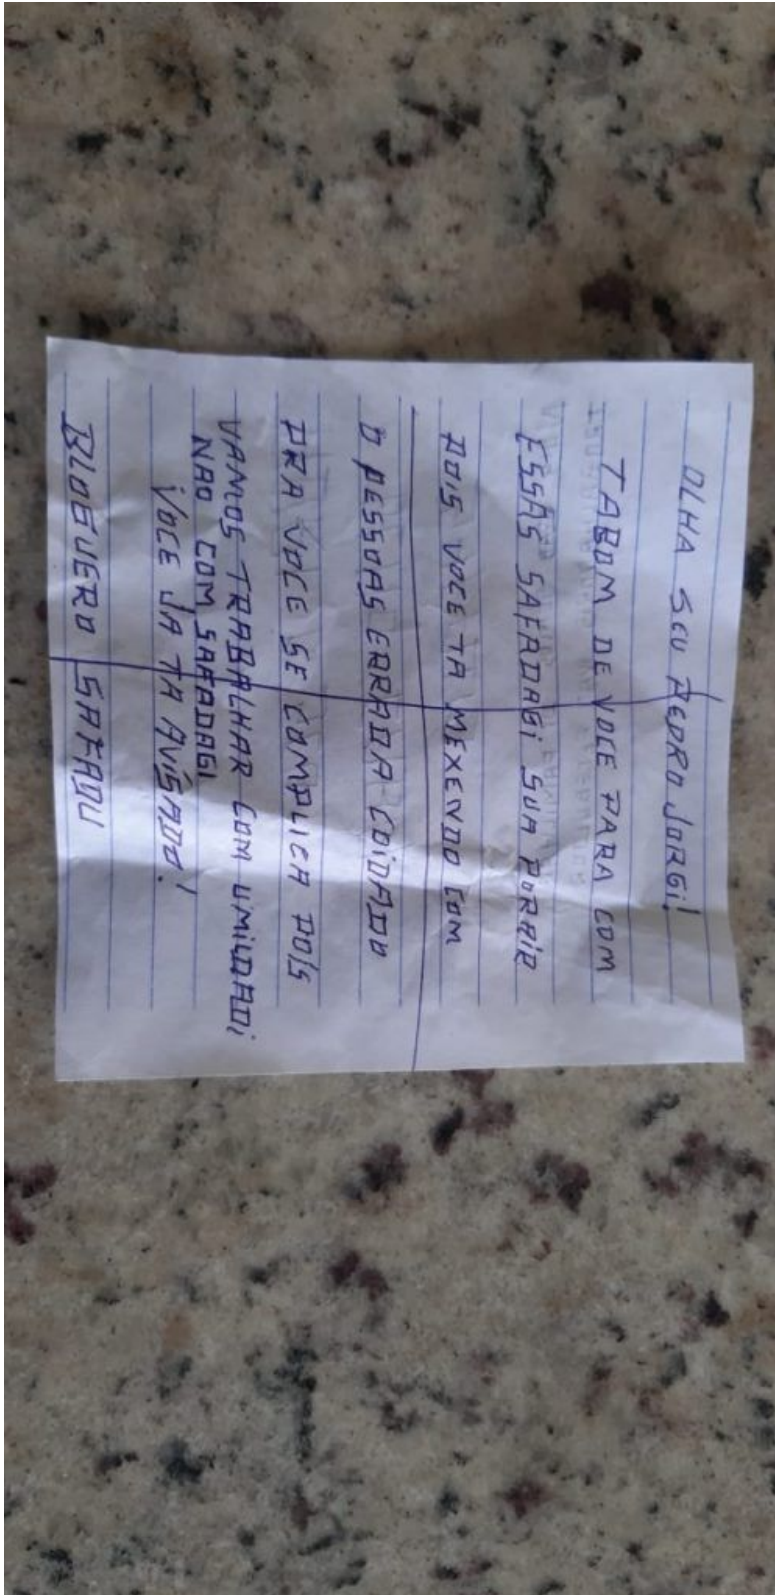 OLHA SEU PEDRO JORGI!
TABOM DE VOCE PARA COM
ESSAS SAFADAGI SUA PORRIR
POIS VOCE TA MEXENDO COM
D PESSOAS ERRADA COIDADO
PRA VOCE SE COMPLICA POIS
VAMOS TRABALHAR COM UMILDADI
NAO COM SAFADAGI
VOCE JA TA AVISADO!
BLOGUERO SAFADU